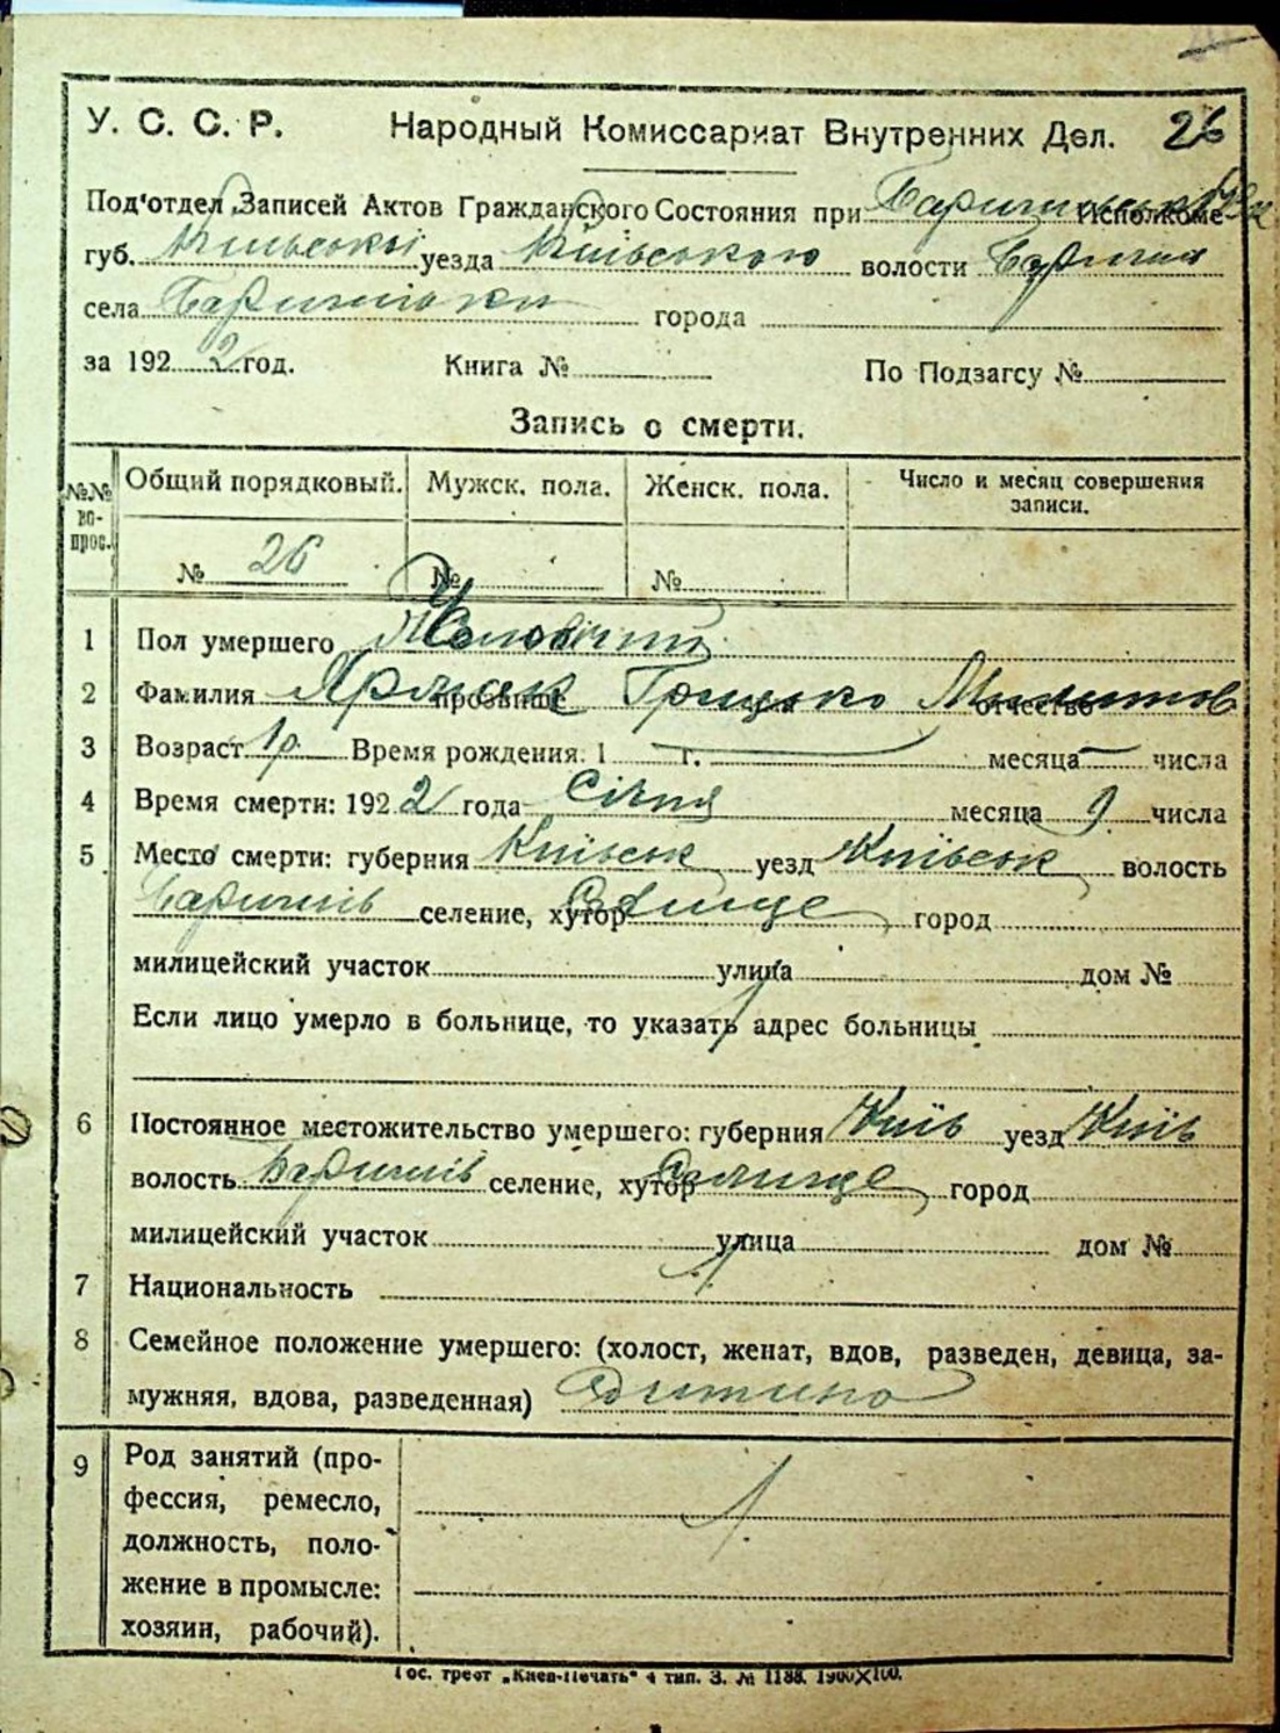 У. С. С. Р. Народный Комиссариат Внутренних Дел. 26
Под'отдел Записей Актов Гражданского Состояния при Исполкоме
губ. Київської уезда Київського волости
села Баришівки города
за 1922 год. Книга № По Подзагсу №
Запись о смерти.
№№ во-прос. Общий порядковый. Мужск. пола. Женск. пола. Число и месяц совершения записи.
№ 26 № №
1 Пол умершего Чоловічий
2 Фамилия прозвище Грицько отчество
3 Возраст 1р. Время рождения: 1 г. месяца числа
4 Время смерти: 1922 года Січня месяца 9 числа
5 Место смерти: губерния Київськ уезд Київськ волость
Баришів селение, хутор Селище город
милицейский участок улица дом №
Если лицо умерло в больнице, то указать адрес больницы
6 Постоянное местожительство умершего: губерния Київ уезд Київ
волость Баришів селение, хутор Селище город
милицейский участок улица дом №
7 Национальность
8 Семейное положение умершего: (холост, женат, вдов, разведен, девица, за-
мужняя, вдова, разведенная) Дитина
9 Род занятий (про-
фессия, ремесло,
должность, поло-
жение в промысле:
хозяин, рабочий).
Гос. трест „Киев-Печать“ 4 тип. З. № 1188. 1900X100.